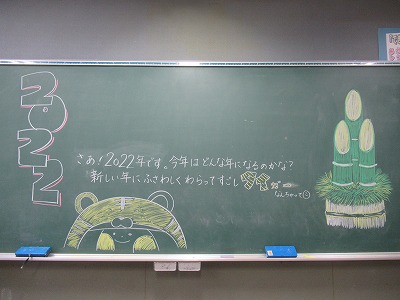 2022
さあ！2022年です。今年はどんな年になるのかな？
新しい年にふさわしくわらってすごし
なんちゃって